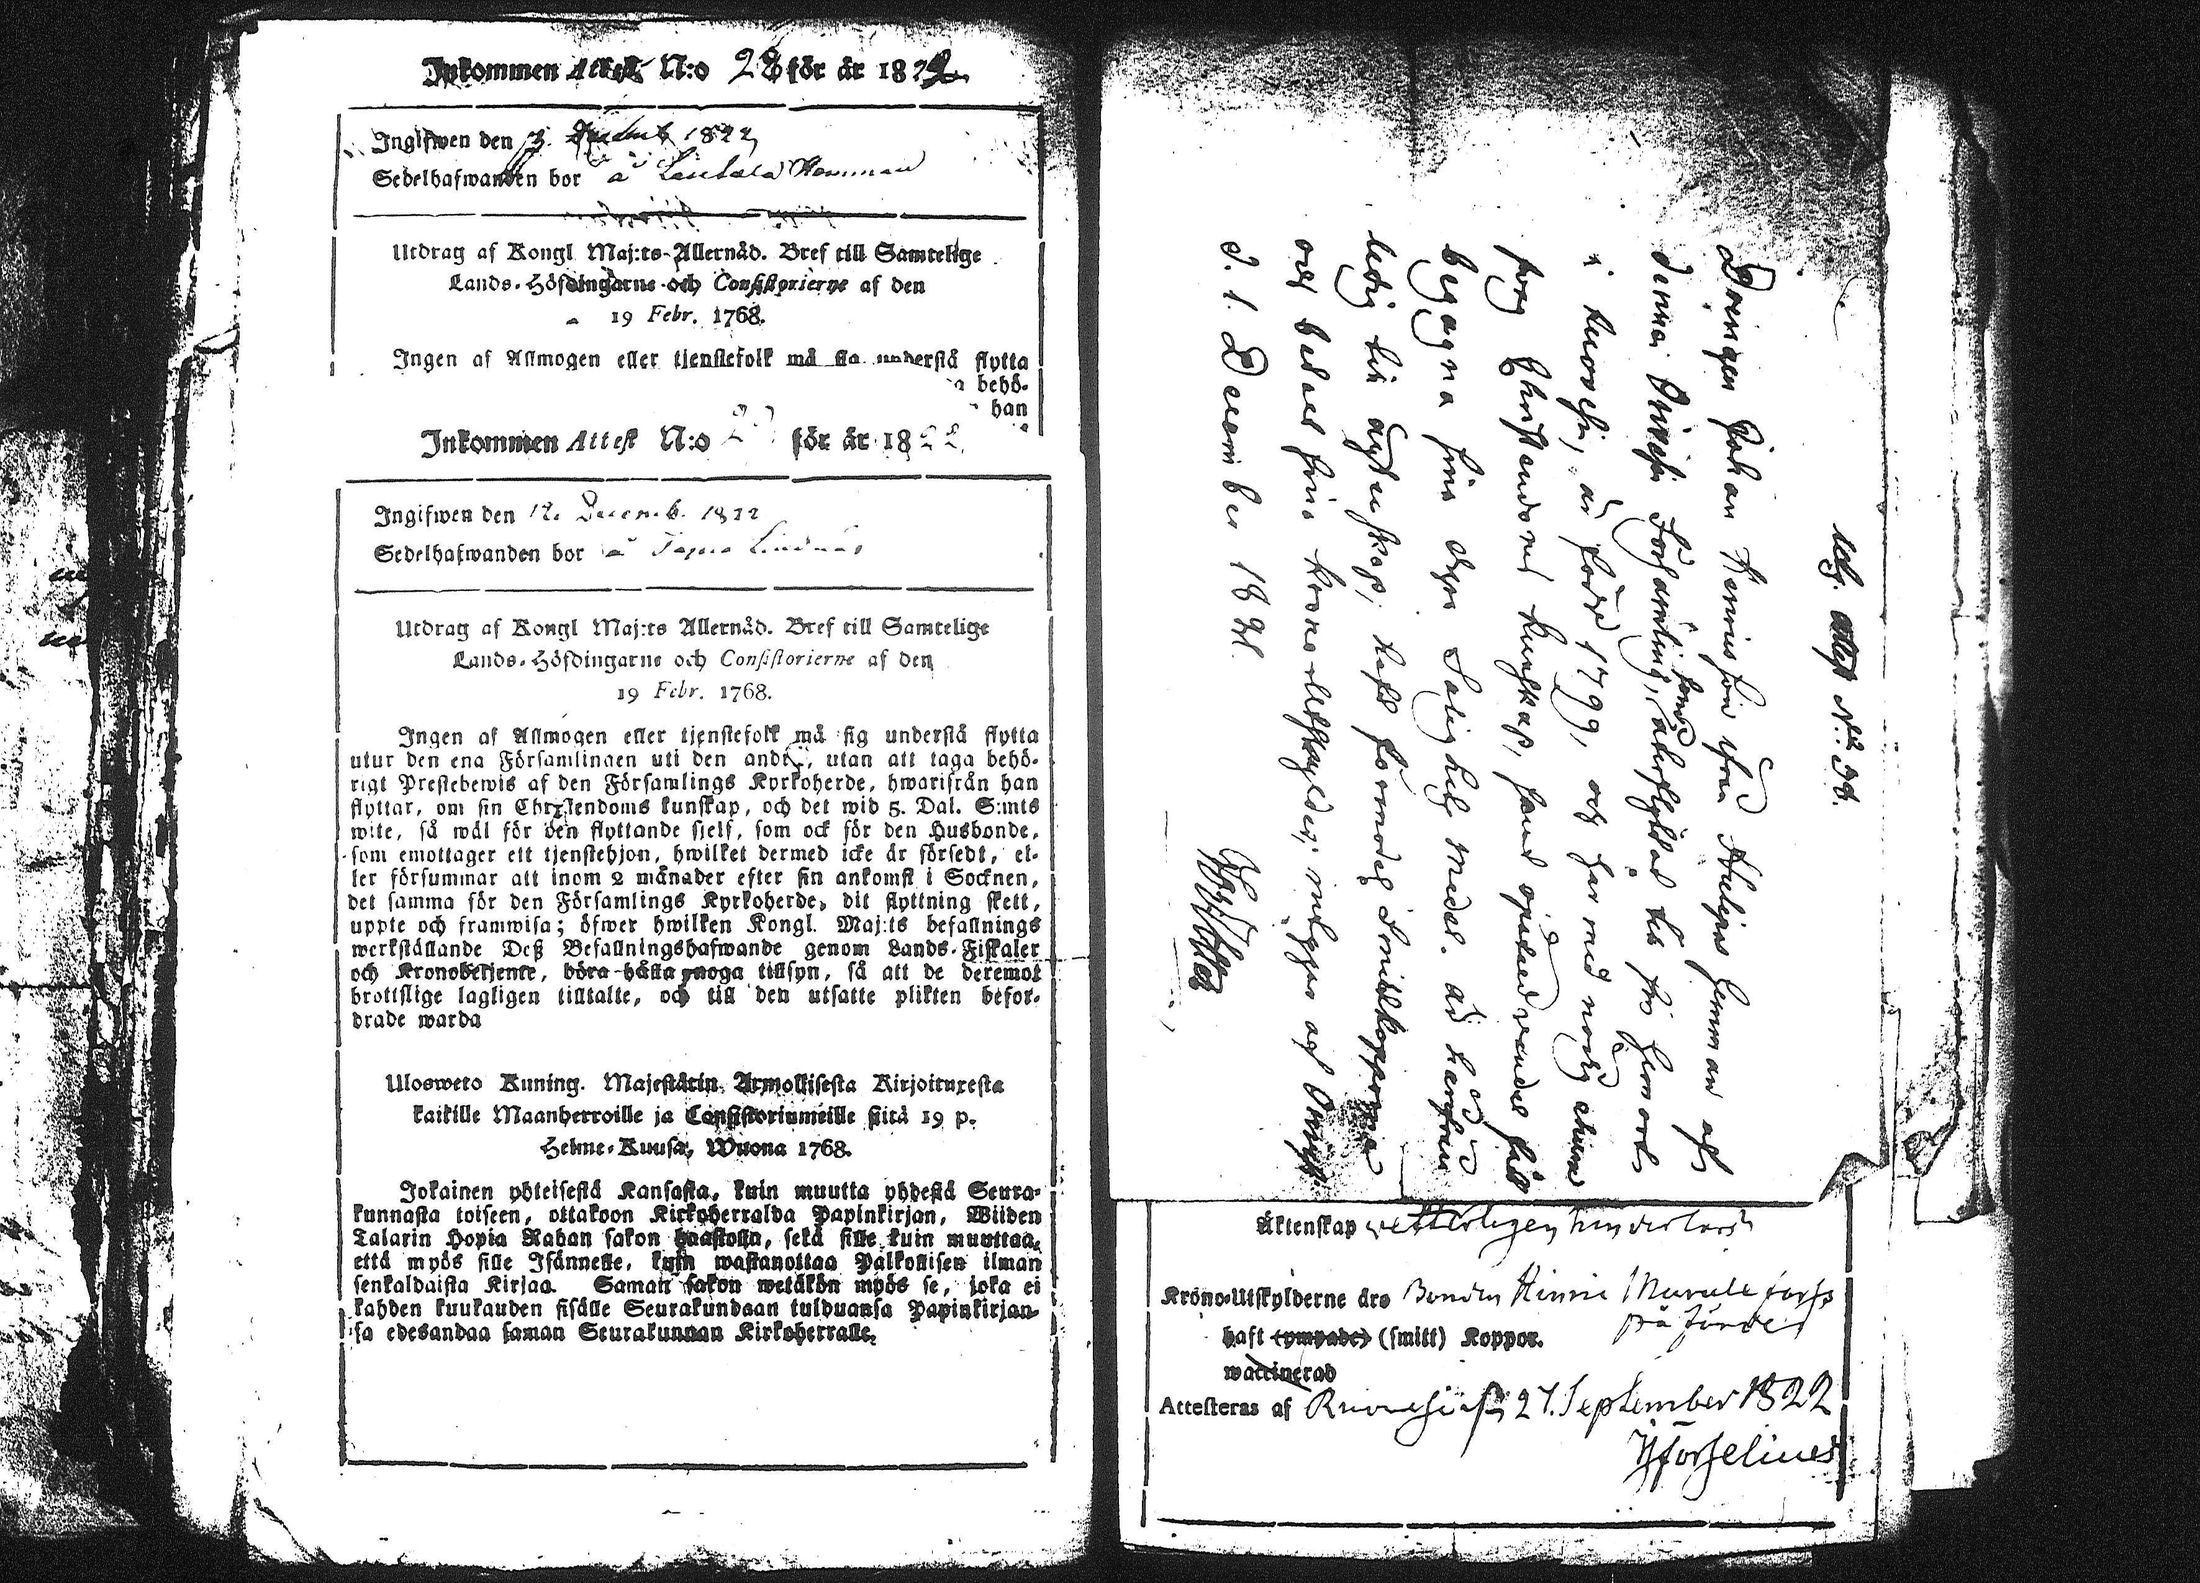 Inkommen Attest N:o 28 för år 1822
Ingifwen den 3. Decemb 1822
Sedelhafwanden bor å Hemman
Utdrag af Kongl Maj:ts Allernåd. Bref till Samtelige
Lands-Höfdingarne och Consistorierne af den
19 Febr. 1768.
Ingen af Allmogen eller tjenstefolk må sig understå flytta
behö-
han
Inkommen Attest N:o 2 för år 1822
Ingifwen den 12. Decemb. 1822
Sedelhafwanden bor å
Utdrag af Kongl Maj:ts Allernåd. Bref till Samtelige
Lands-Höfdingarne och Consistorierne af den
19 Febr. 1768.
Ingen af Allmogen eller tjenstefolk må sig understå flytta
utur den ena Församlingen uti den andra, utan att taga behö-
rigt Prestebewis af den Församlings Kyrkoherde, hwarifrån han
flyttar, om sin Christendoms kunskap, och det wid 5. Dal. S:mts
wite, så wäl för den flyttande sjelf, som ock för den Husbonde,
som emottager ett tjenstehjon, hwilket dermed icke är försedt, el-
ler försummar att inom 2 månader efter sin ankomst i Socknen,
det samma för den Församlings Kyrkoherde, dit flyttning skett,
uppte och framwisa; öfwer hwilken Kongl. Maj:ts befallnings
werkställande Deß Befallningshafwande genom Lands-Fiskaler
och Kronobetjente, böra hålla noga tillsyn, så att de deremot
brottslige lagligen tilltalte, och till den utsatte plikten befor-
drade warda
Ulosweto Kuning. Majestätin Armollisesta Kirjoituxesta
kaikille Maanherroille ja Consistoriumeille siitä 19 p.
Helme-Kuusa, Wuona 1768.
Jokainen yhteisestä Kansasta, kuin muutta yhdestä Seura-
kunnasta toiseen, ottakoon Kirkoherralda Papinkirjan, Wiiden
Talarin Hopia Rahan sakon haastolla, sekä sille kuin muuttaa,
että myös sille Isännelle, kuin wastanottaa Palkollisen ilman
senkaldaista Kirjaa. Saman sakon wetäkön myös se, joka ei
kahden kuukauden sisälle Seurakundaan tulduansa Papinkirjan-
sa edesandaa saman Seurakunnan Kirkoherralle.
Utg. Attest N:o 38.
Drängen Johan ifrån Hemman af
denna Församling, återflyttad till sin hemort
i Ruovesi, är född 1799, och har med nödig
Christendoms kunskap, sand
begagna sina dyra Salighets medel. är härifrån
ledig till ägtenskap, haft förmodeligen
och betalt sina krono utskylder; intygas af
d. 1. December 1822.
Äktenskap wetterligen hinderlös
Krono-Utskylderne äro Bonden
haft (ympade) (smitt) Koppor.
waccinerad
Attesteras af Ruovesi 27. September 1822
Forselius